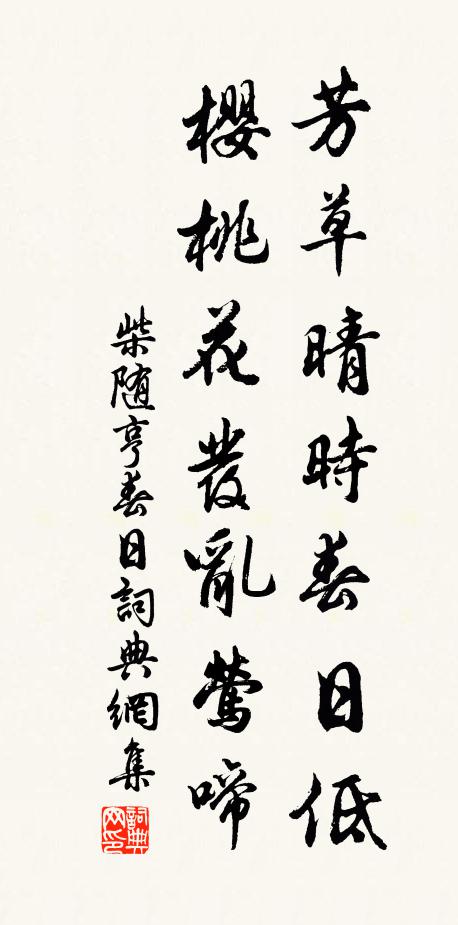 芳草晴時春日低
櫻桃花發亂鶯啼
柴随亨春日詞典網集
詞典网印